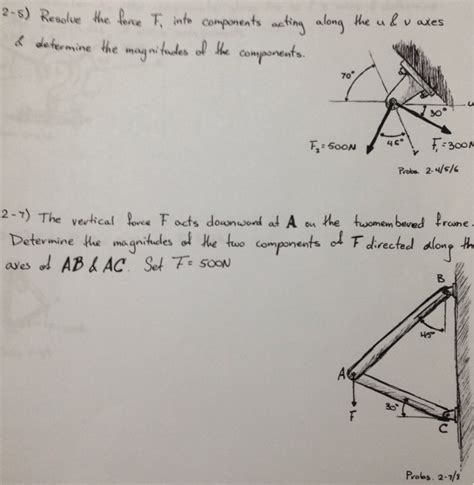 2-5) Resolve the force F, into components acting along the u & v axes
& determine the magnitudes of the components.
70°
u
30°
F₂=500N
45°
v
F₁=300N
Probs. 2-4/5/6
2-7) The vertical force F acts downward at A on the twomembered frame.
Determine the magnitudes of the two components of F directed along the
axes of AB & AC. Set F= 500N
B
45°
A
F
30°
C
Probs. 2-7/8